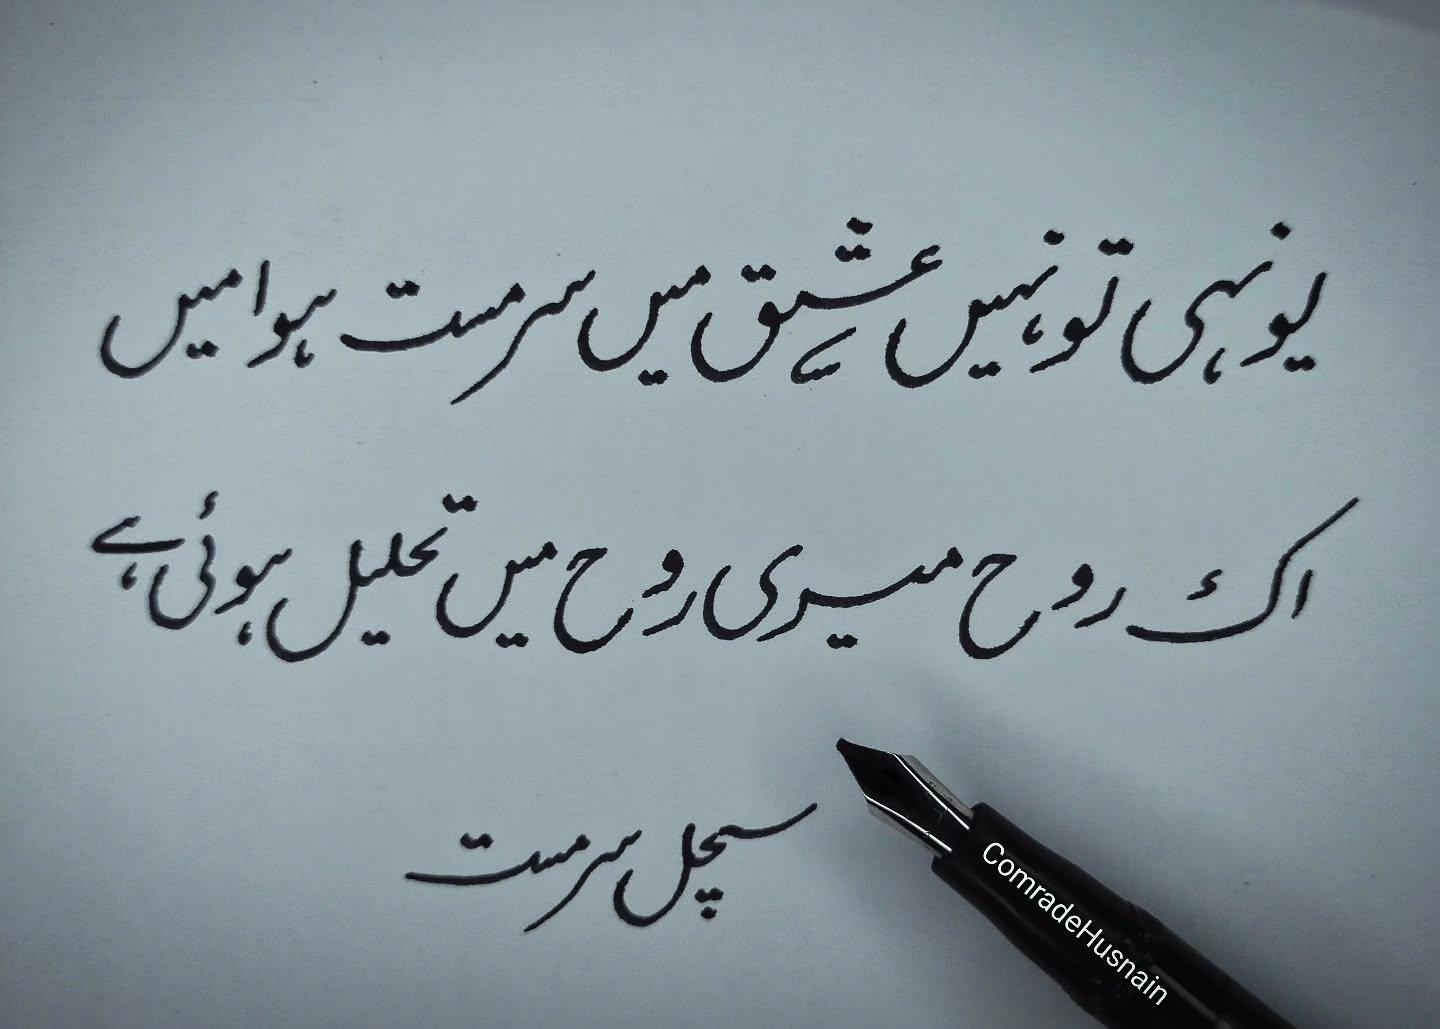 یونہی تو نہیں عشقِ میں سرمست ہوا میں
اک روح میری روح میں تحلیل ہوئی ہے
سچل سرمست
ComradeHusnain